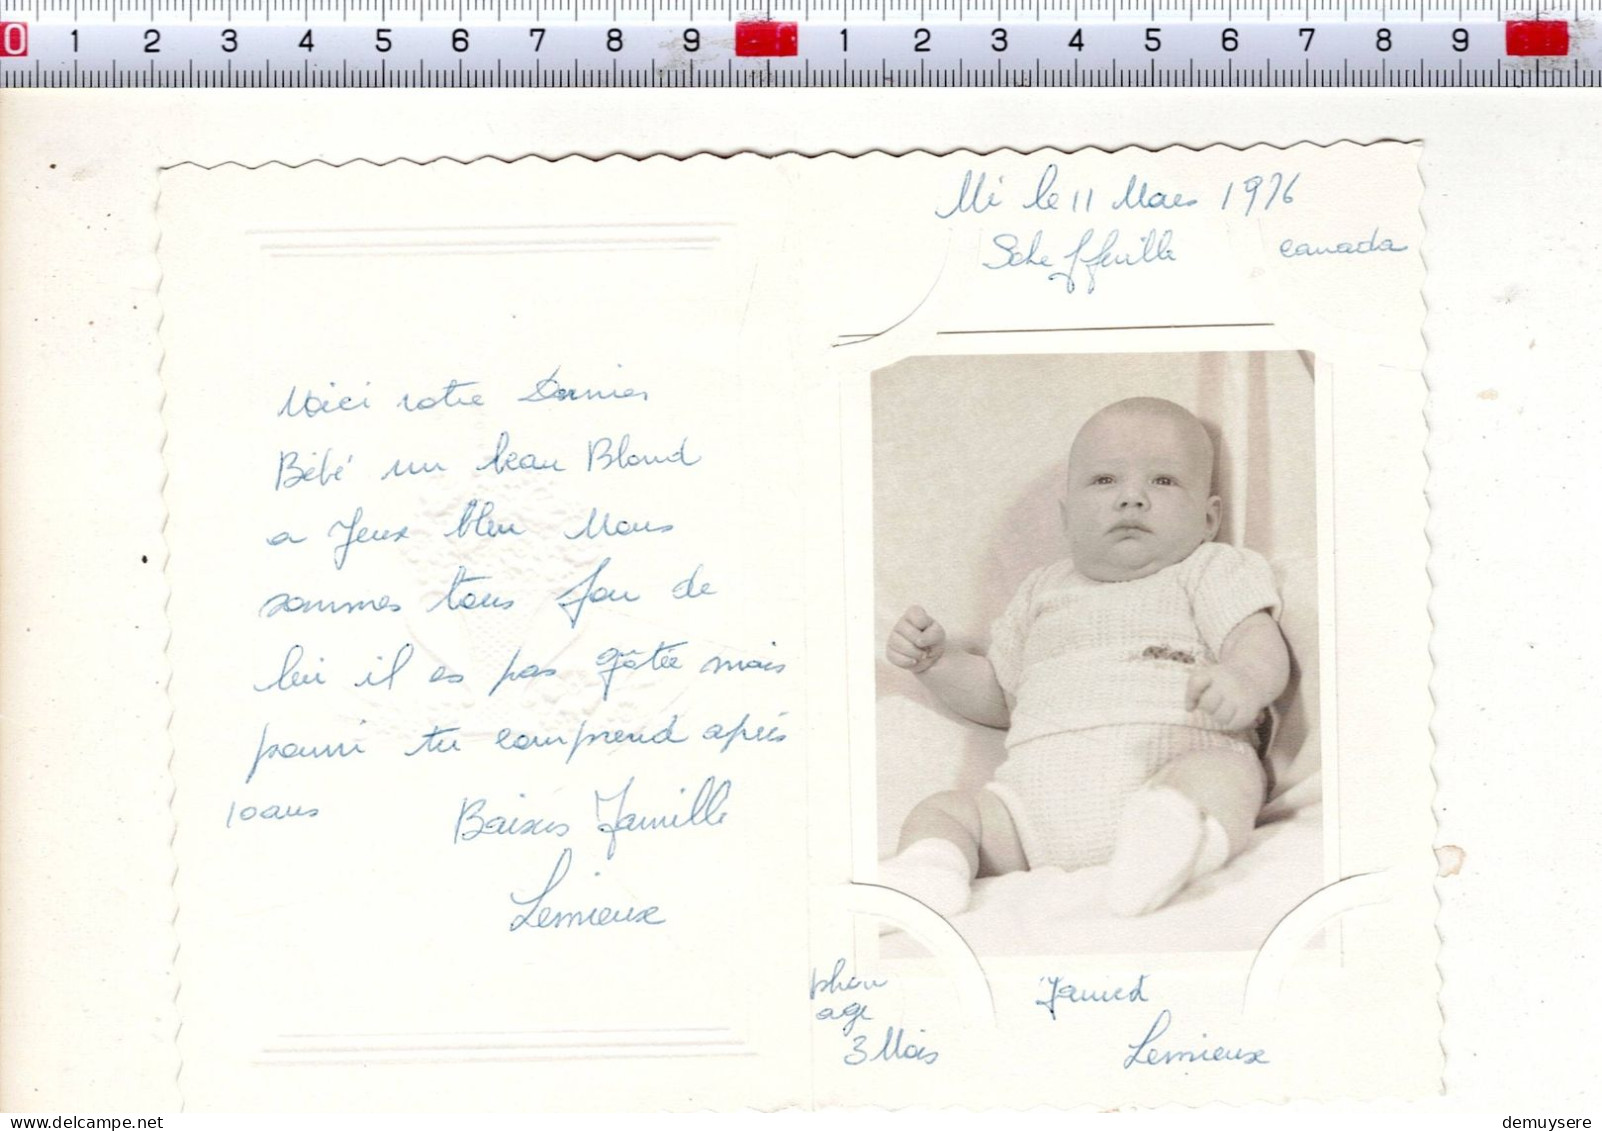 0 1 2 3 4 5 6 7 8 9 1 2 3 4 5 6 7 8 9
Voici notre Dernier
Bébé un beau Blond
a Yeux bleu Nous
sommes tous fou de
lui il es pas gâtée mais
pourri tu comprend après
10 ans Baises Famille
Lemieux
Né le 11 Mars 1976
Schefferville canada
age
3 Mois
Lemieux
demuysere